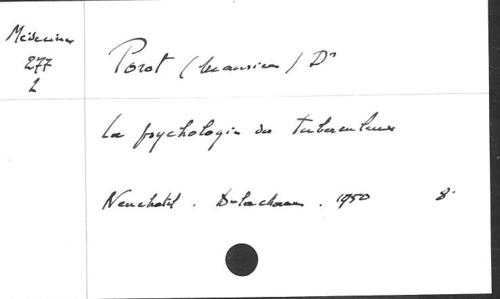 Médecine
277
2
Porot (Maurice) Dr
La psychologie des tuberculeux
Neuchatel. Delachaux. 1950 8°